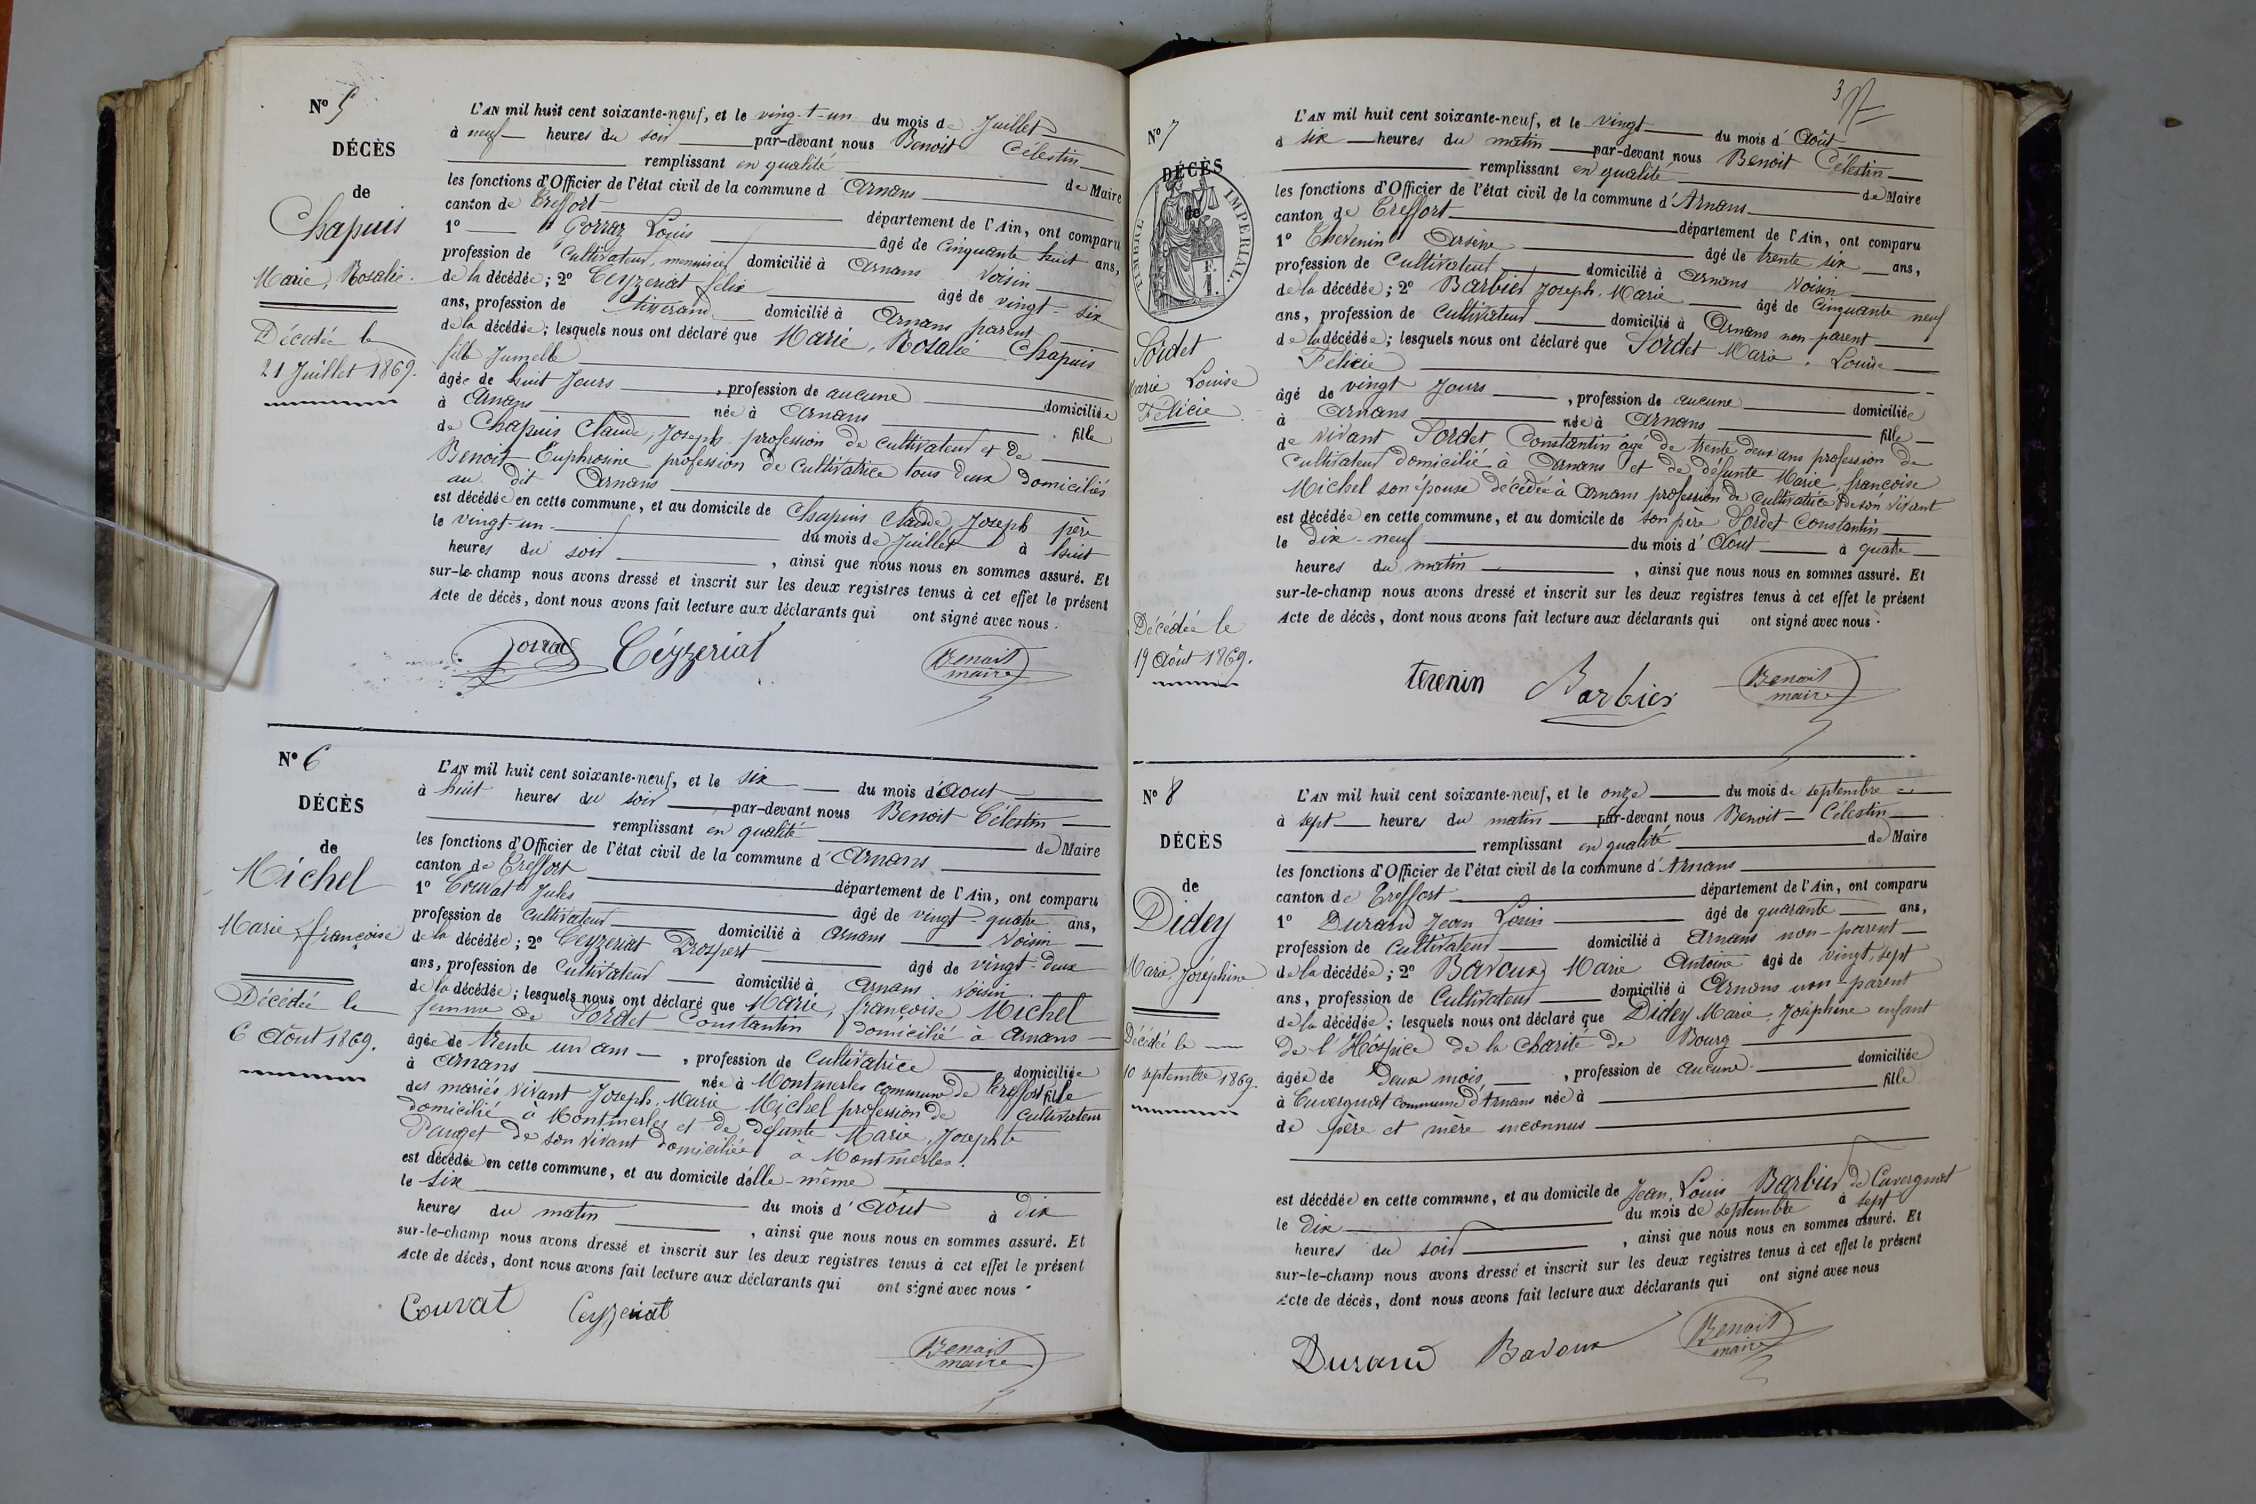 N° 5
DÉCÈS
de
Chapuis
Marie, Rosalie.
Décédée le
21 Juillet 1869.
L'AN mil huit cent soixante-neuf, et le vingt-un du mois de Juillet
à neuf heures du soir par-devant nous Benoit Célestin
remplissant en qualité de Maire
les fonctions d'Officier de l'état civil de la commune d Arnans
canton de Treffort département de l'Ain, ont comparu
1° Gorraz Louis âgé de Cinquante huit ans,
profession de Cultivateur, menuisier domicilié à Arnans Voisin
de la décédée; 2° Ceyzeriat félix âgé de vingt-six
ans, profession de tisserand domicilié à Arnans parent
de la décédée; lesquels nous ont déclaré que Marie, Rosalie Chapuis
fille Jumelle
âgée de huit Jours , profession de aucune domiciliée
à Arnans née à Arnans fille
de Chapuis Claude, Joseph profession de cultivateur et de
Benoit Euphrosine profession de Cultivatrice tous deux domiciliés
au dit Arnans
est décédée en cette commune, et au domicile de Chapuis Claude, Joseph père
le vingt-un du mois de Juillet à huit
heures du soir , ainsi que nous nous en sommes assuré. Et
sur-le-champ nous avons dressé et inscrit sur les deux registres tenus à cet effet le présent
Acte de décès, dont nous avons fait lecture aux déclarants qui ont signé avec nous.
Gorraz Céyzeriat Benoit
maire
N° 6
DÉCÈS
de
Michel
Marie, françoise
Décédée le
6 Août 1869.
L'AN mil huit cent soixante-neuf, et le six du mois d'Aout
à huit heures du soir par-devant nous Benoit Célestin
remplissant en qualité de Maire
les fonctions d'Officier de l'état civil de la commune d'Arnans
canton de Treffort département de l'Ain, ont comparu
1° Couvat Jules âgé de vingt quatre ans,
profession de Cultivateur domicilié à Arnans Voisin
de la décédée; 2° Ceyzeriat Prospert âgé de vingt-deux
ans, profession de Cultivateur domicilié à Arnans Voisin
de la décédée; lesquels nous ont déclaré que Marie, françoise Michel
femme de Sordet Constantin domicilié à Arnans
âgée de trente un ans , profession de Cultivatrice domiciliée
à Arnans née à Montmerles commune de Treffort fille
des mariés vivant Joseph, Marie Michel profession de Cultivateur
domicilié à Montmerles et de défunte Marie, Josephte
Pauget de son vivant domiciliée à Montmerles.
est décédée en cette commune, et au domicile d'elle-même
le six du mois d'Août à dix
heures du matin , ainsi que nous nous en sommes assuré. Et
sur-le-champ nous avons dressé et inscrit sur les deux registres tenus à cet effet le présent
Acte de décès, dont nous avons fait lecture aux déclarants qui ont signé avec nous.
Couvat Ceyzeriat
Benoit
maire
3
N° 7
DÉCÈS
de
TIMBRE IMPÉRIAL.
Sordet
Marie Louise
Félicie
Décédée le
19 Août 1869.
L'AN mil huit cent soixante-neuf, et le vingt du mois d'Août
à six heures du matin par-devant nous Benoit Célestin
remplissant en qualité de Maire
les fonctions d'Officier de l'état civil de la commune d'Arnans
canton de Treffort département de l'Ain, ont comparu
1° Thevenin Arsène âgé de trente six ans,
profession de Cultivateur domicilié à Arnans Voisin
de la décédée; 2° Barbier Joseph, Marie âgé de Cinquante neuf
ans, profession de Cultivateur domicilié à Arnans non parent
de la décédée; lesquels nous ont déclaré que Sordet Marie, Louise
Félicie
âgé de vingt Jours , profession de aucune domiciliée
à Arnans née à Arnans fille
de vivant Sordet Constantin âgé de trente deux ans profession de
Cultivateur domicilié à Arnans et de défunte Marie, françoise
Michel son épouse décédée à Arnans profession de Cultivatrice de son vivant
est décédée en cette commune, et au domicile de son père Sordet Constantin
le dix-neuf du mois d'Aout à quatre
heures du matin , ainsi que nous nous en sommes assuré. Et
sur-le-champ nous avons dressé et inscrit sur les deux registres tenus à cet effet le présent
Acte de décès, dont nous avons fait lecture aux déclarants qui ont signé avec nous.
tevenin Barbier Benoit
maire
N° 8
DÉCÈS
de
Didey
Marie, Joséphine
Décédée le
10 septembre 1869.
L'AN mil huit cent soixante-neuf, et le onze du mois de septembre
à sept heures du matin par-devant nous Benoit Célestin
remplissant en qualité de Maire
les fonctions d'Officier de l'état civil de la commune d'Arnans
canton de Treffort département de l'Ain, ont comparu
1° Durand Jean Louis âgé de quarante ans,
profession de Cultivateur domicilié à Arnans non-parent
de la décédée; 2° Bavoux Marie Antoine âgé de vingt, sept
ans, profession de Cultivateur domicilié à Arnans non-parent
de la décédée; lesquels nous ont déclaré que Didey Marie, Joséphine enfant
de l'Hospice de la Charité de Bourg
âgée de Deux mois , profession de aucune domiciliée
à Cuvergnat commune d'Arnans née à fille
de père et mère inconnus
est décédée en cette commune, et au domicile de Jean, Louis Barbier de Cuvergnat
le dix du mois de septembre à sept
heures du soir , ainsi que nous nous en sommes assuré. Et
sur-le-champ nous avons dressé et inscrit sur les deux registres tenus à cet effet le présent
Acte de décès, dont nous avons fait lecture aux déclarants qui ont signé avec nous
Durand Bavoux Benoit
maire